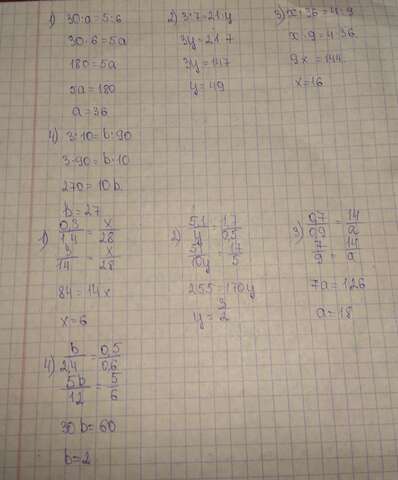 1) 30:a=5:6
2) 3:7=21:y
3) x:36=4:9
30·6=5a
3y=21·7
x·9=4·36
180=5a
3y=147
9x=144
5a=180
y=49
x=16
a=36
4) 3:10=b:90
3·90=b·10
270=10b
b=27
1) 0,3/1,4=x/28
2) 5,1/y=1,7/0,5
3) 0,7/0,9=14/a
3/14=x/28
51/10y=17/5
7/9=14/a
84=14x
255=170y
7a=126
x=6
y=3/2
a=18
4) b/2,4=0,5/0,6
5b/12=5/6
30b=60
b=2